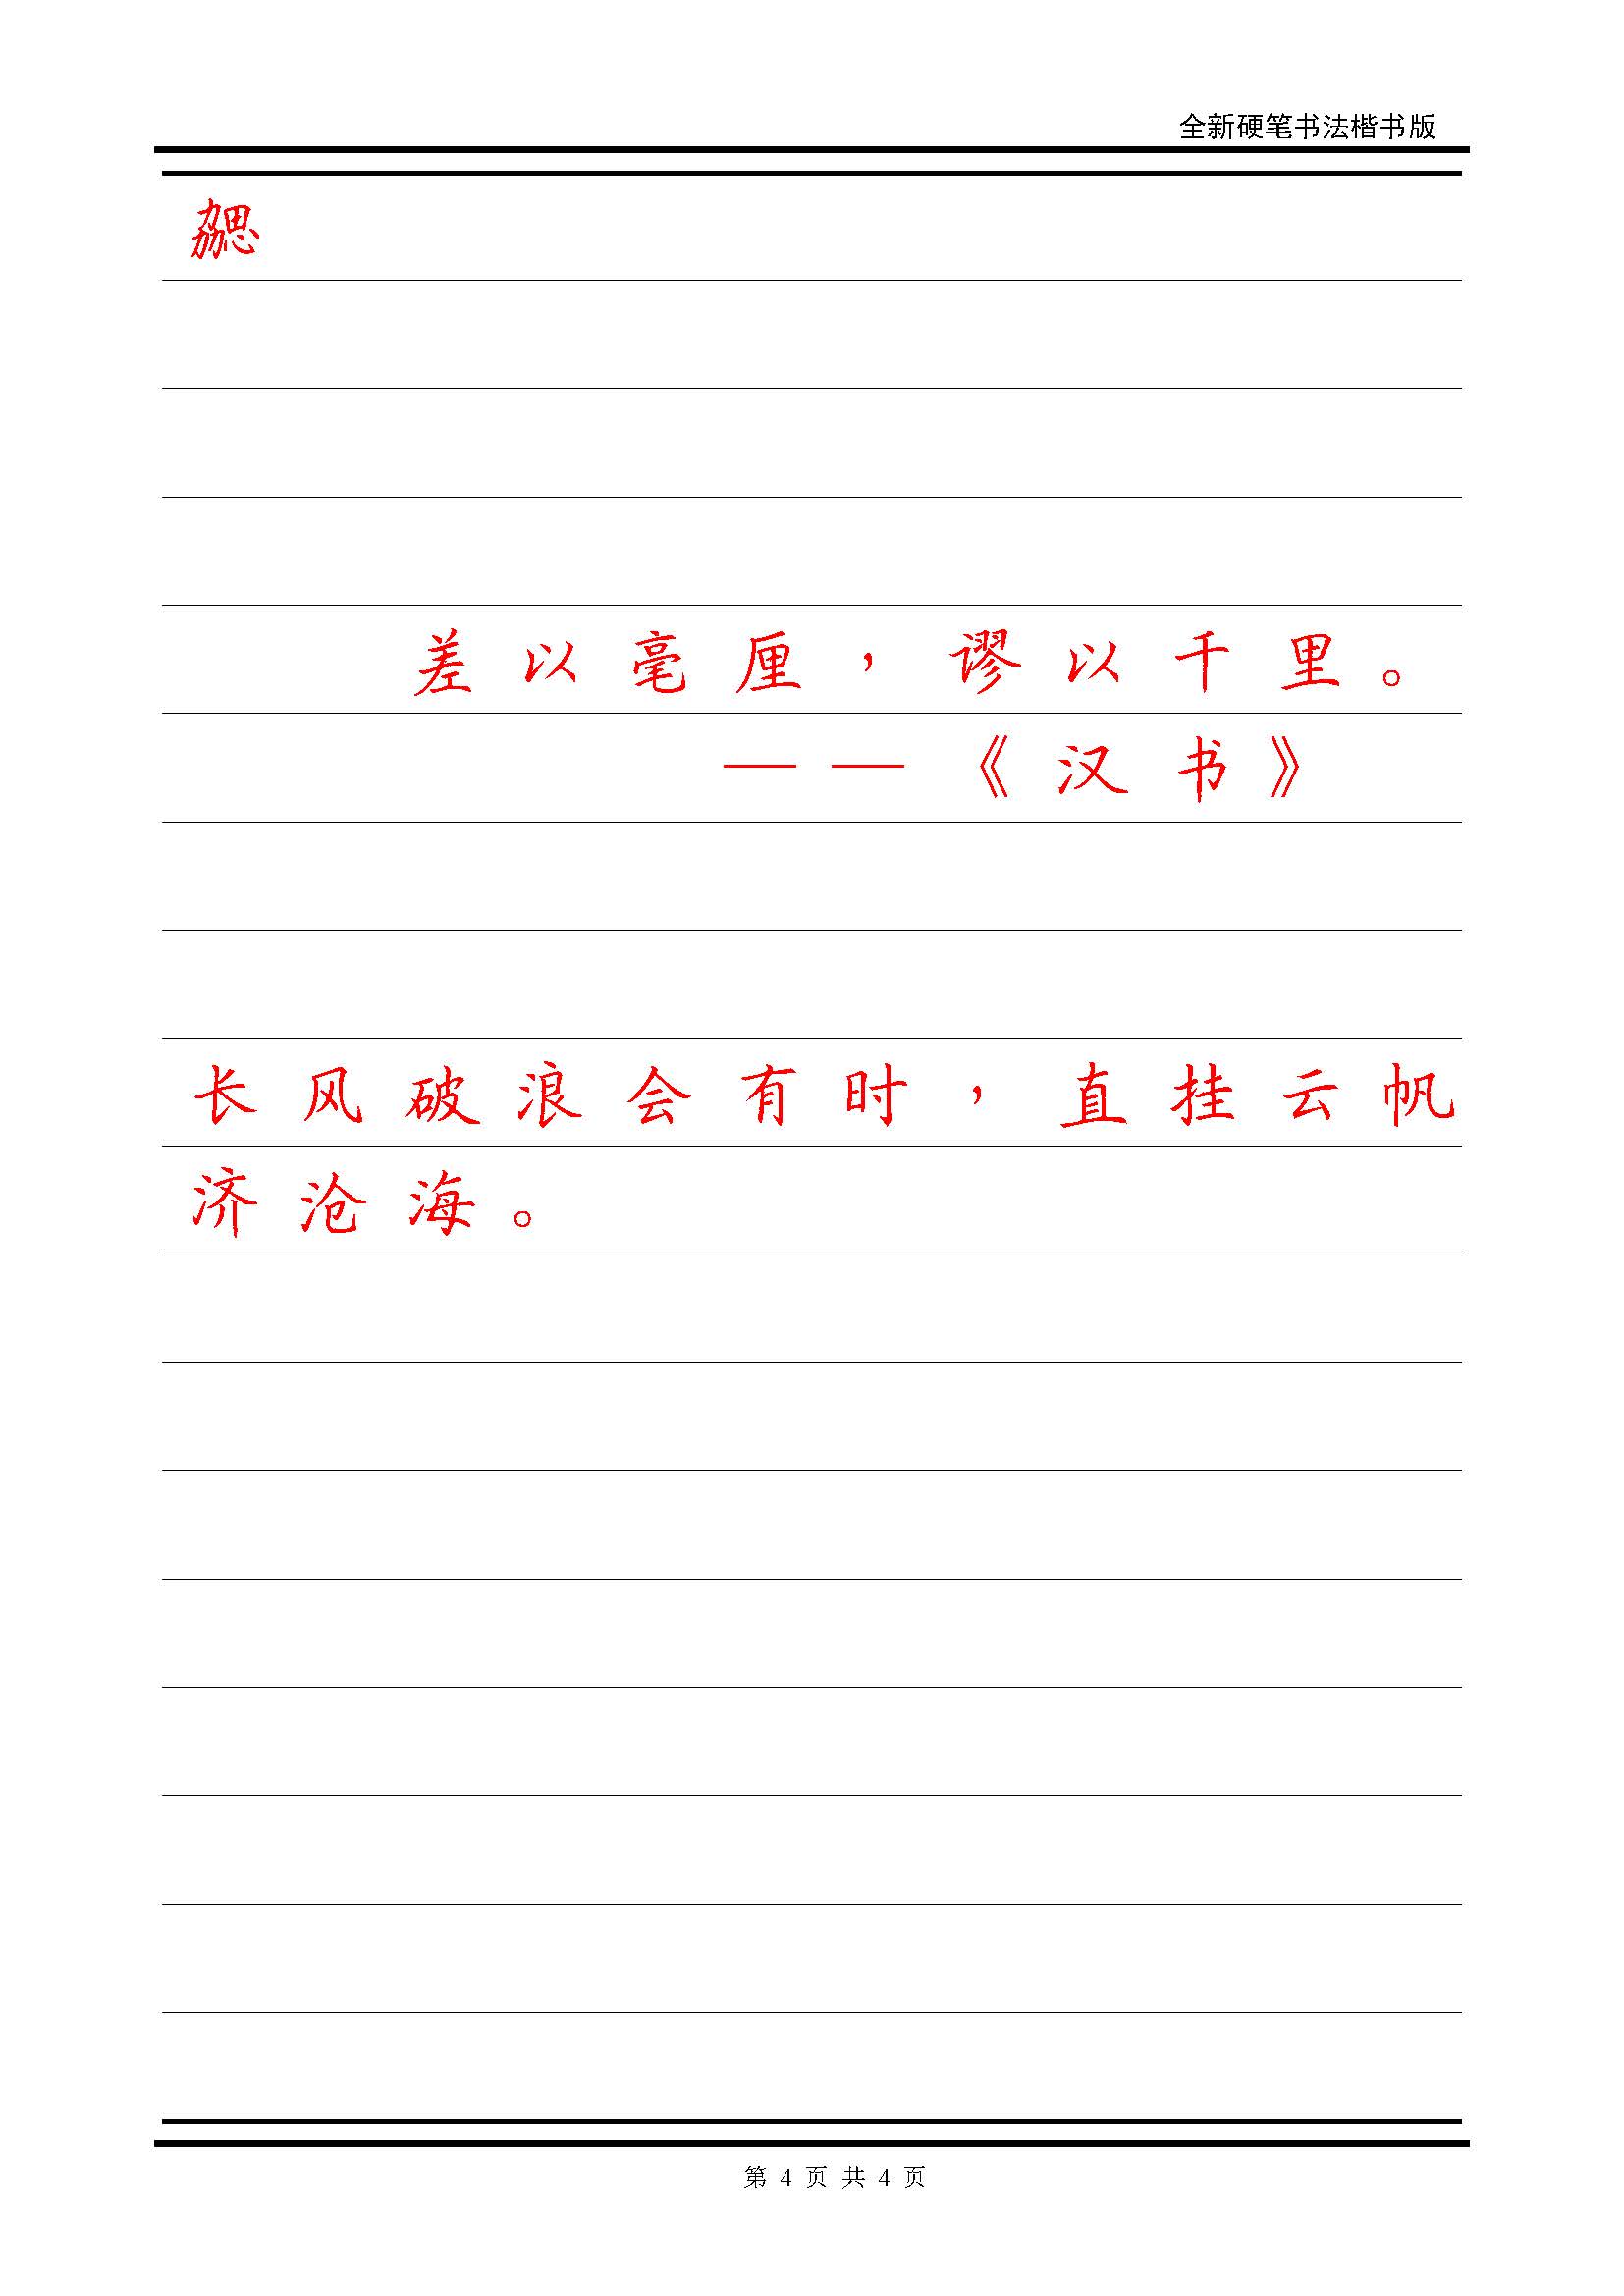 全新硬笔书法楷书版
勰
差以毫厘，谬以千里。
——《汉书》
长风破浪会有时，直挂云帆
济沧海。
第 4 页 共 4 页